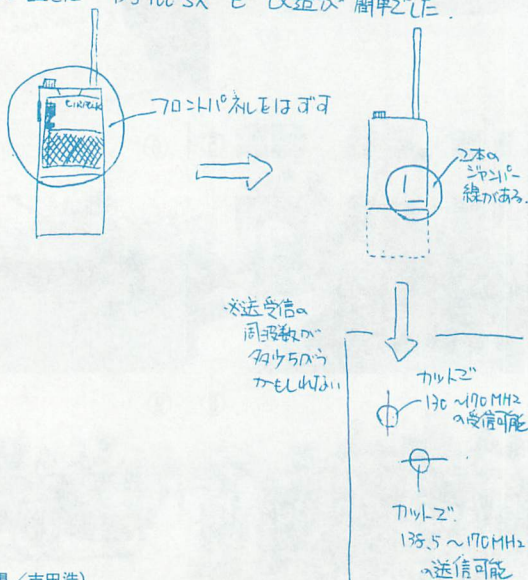 改造が 簡単でした.
フロントパネルをはずす
2本の
ジャンパー
線がある.
※送受信の
周波数が
かもしれない
カットで
130~170MHz
の受信可能
カットで
138.5~170MHz
の送信可能